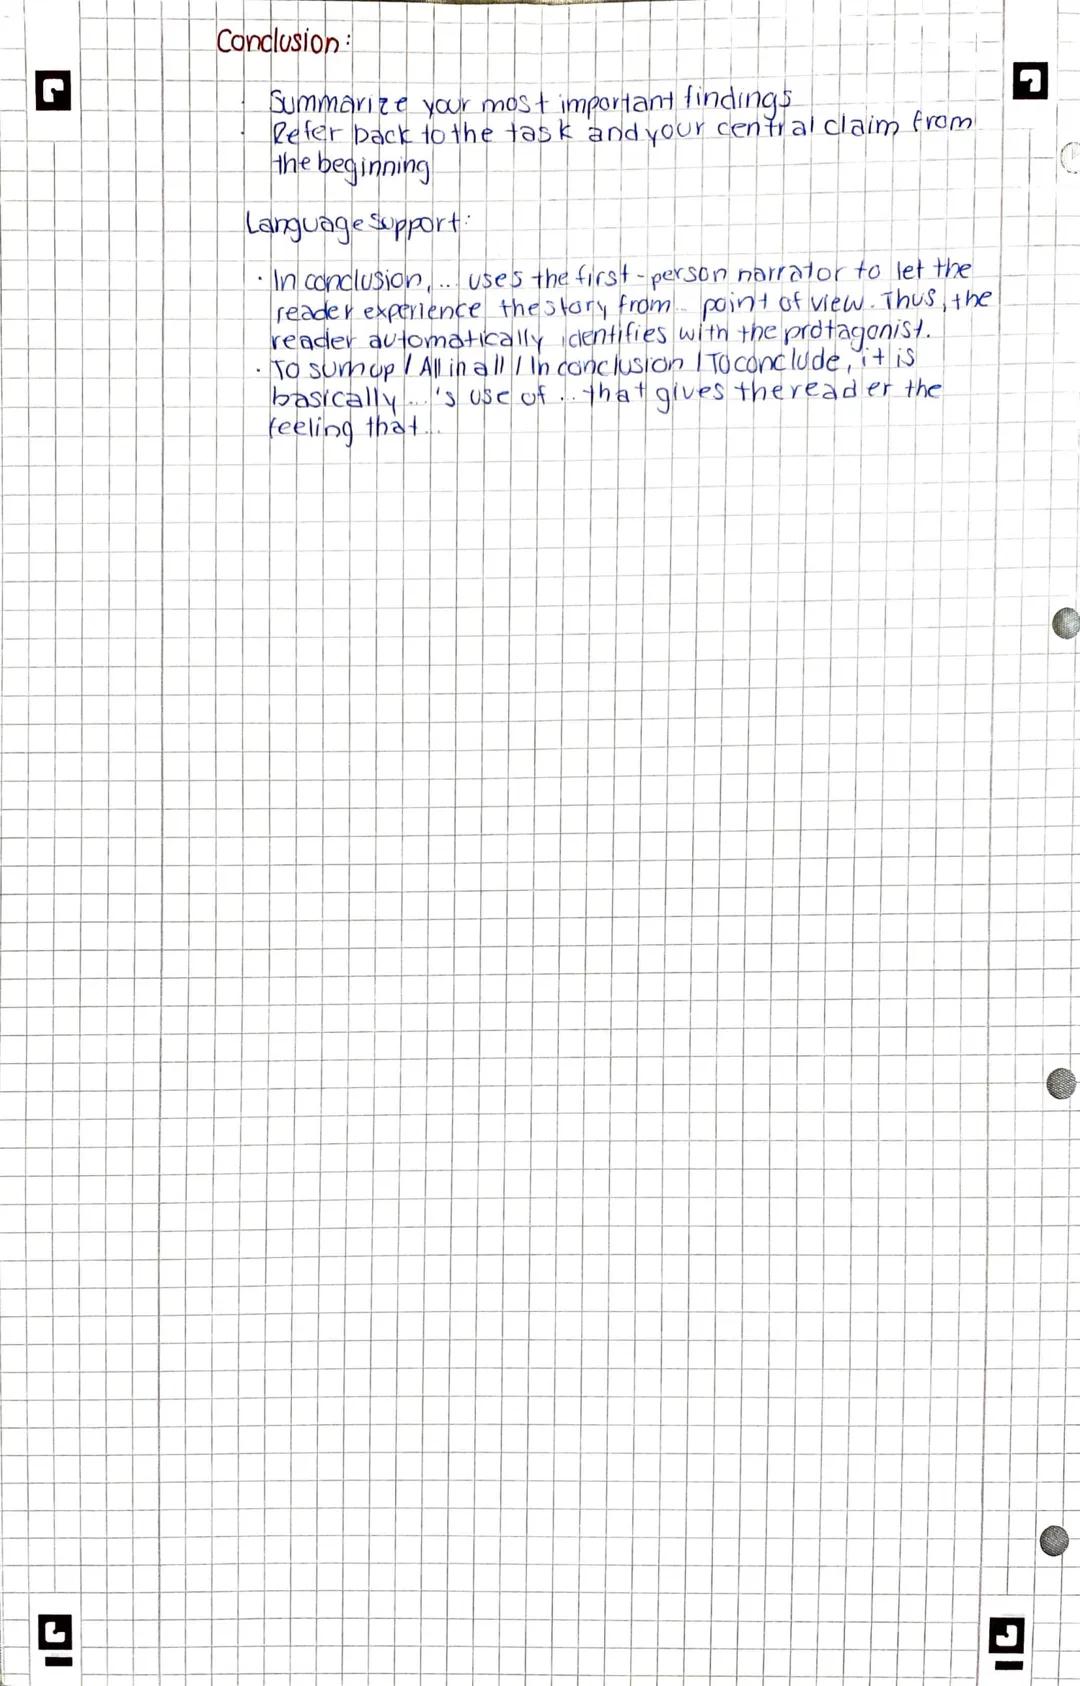 Conclusion:
· Summarize your most important findings
· Refer back to the task and your central claim from
the beginning
Language support:
· In conclusion, ... uses the first-person narrator to let the
reader experience the story from ... point of view. Thus, the
reader automatically identifies with the protagonist.
· To sum up / All in all / In conclusion / To conclude, it is
basically ...'s use of ... that gives the reader the
feeling that ...